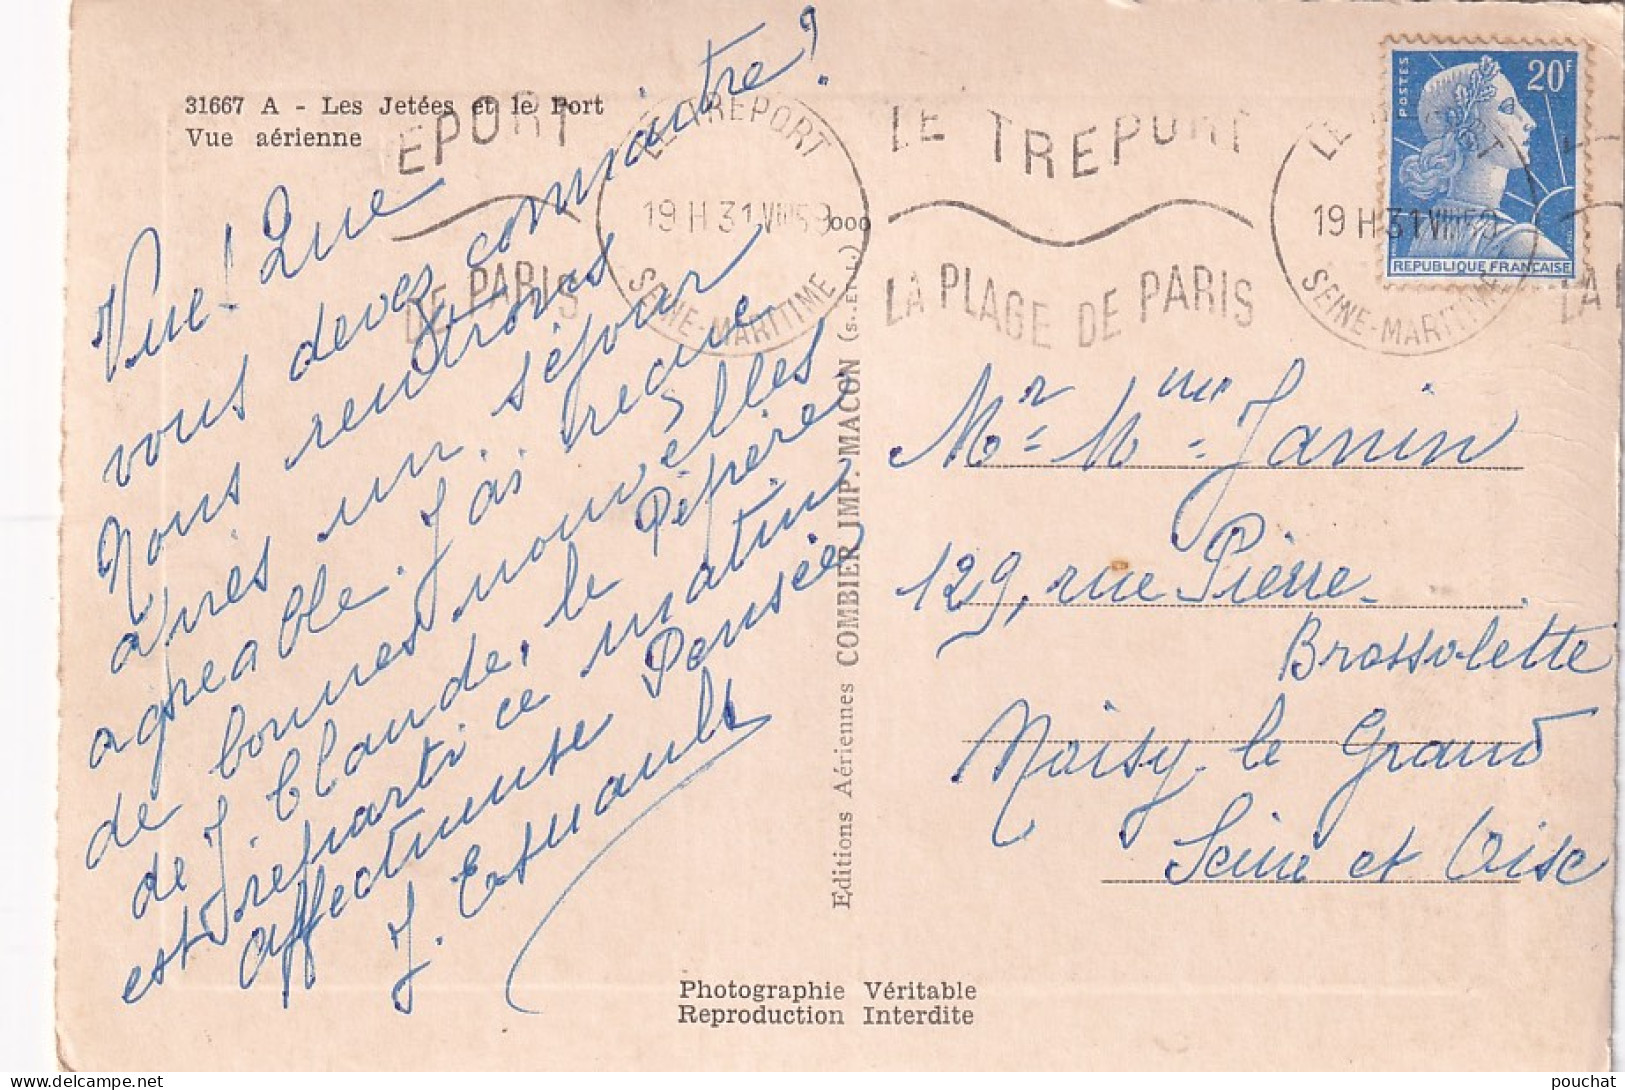 31667 A - Les Jetées et le Port
Vue aérienne
EPORT
DE PARIS
LE TREPORT
19 H 31 VIII 59
SEINE-MARITIME
LE TREPORT
LA PLAGE DE PARIS
LE TREPORT
19 H 31 VIII 59
SEINE-MARITIME
LA
POSTES
20F
REPUBLIQUE FRANÇAISE
Vue! Que
vous devez connaitre!
Nous rentrons
après un séjour
agréable. J'ai reçue
de bonnes nouvelles
de J. Claude, le Pépère
est reparti ce matin
affectueuse Pensée
J.
Editions Aériennes COMBIER IMP. MACON (S.-et-L.) 000
Mr. Mme. Janin
129, rue Pierre
Brossolette
Noisy le Grand
Seine et Oise
Photographie Véritable
Reproduction Interdite
pouchat
delcampe.net